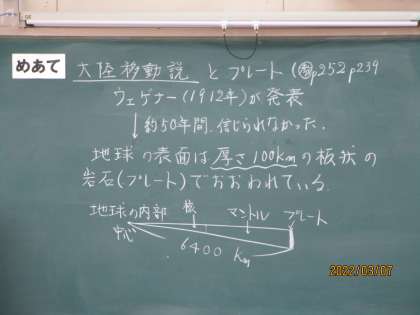 めあて 大陸移動説とプレート(教p252 p239
ウェゲナー(1912年)が発表
↓約50年間、信じられなかった。
地球の表面は厚さ100kmの板状の
岩石(プレート)でおおわれている。
地球の内部 核 マントル プレート
中心
6400 km
2022/03/07